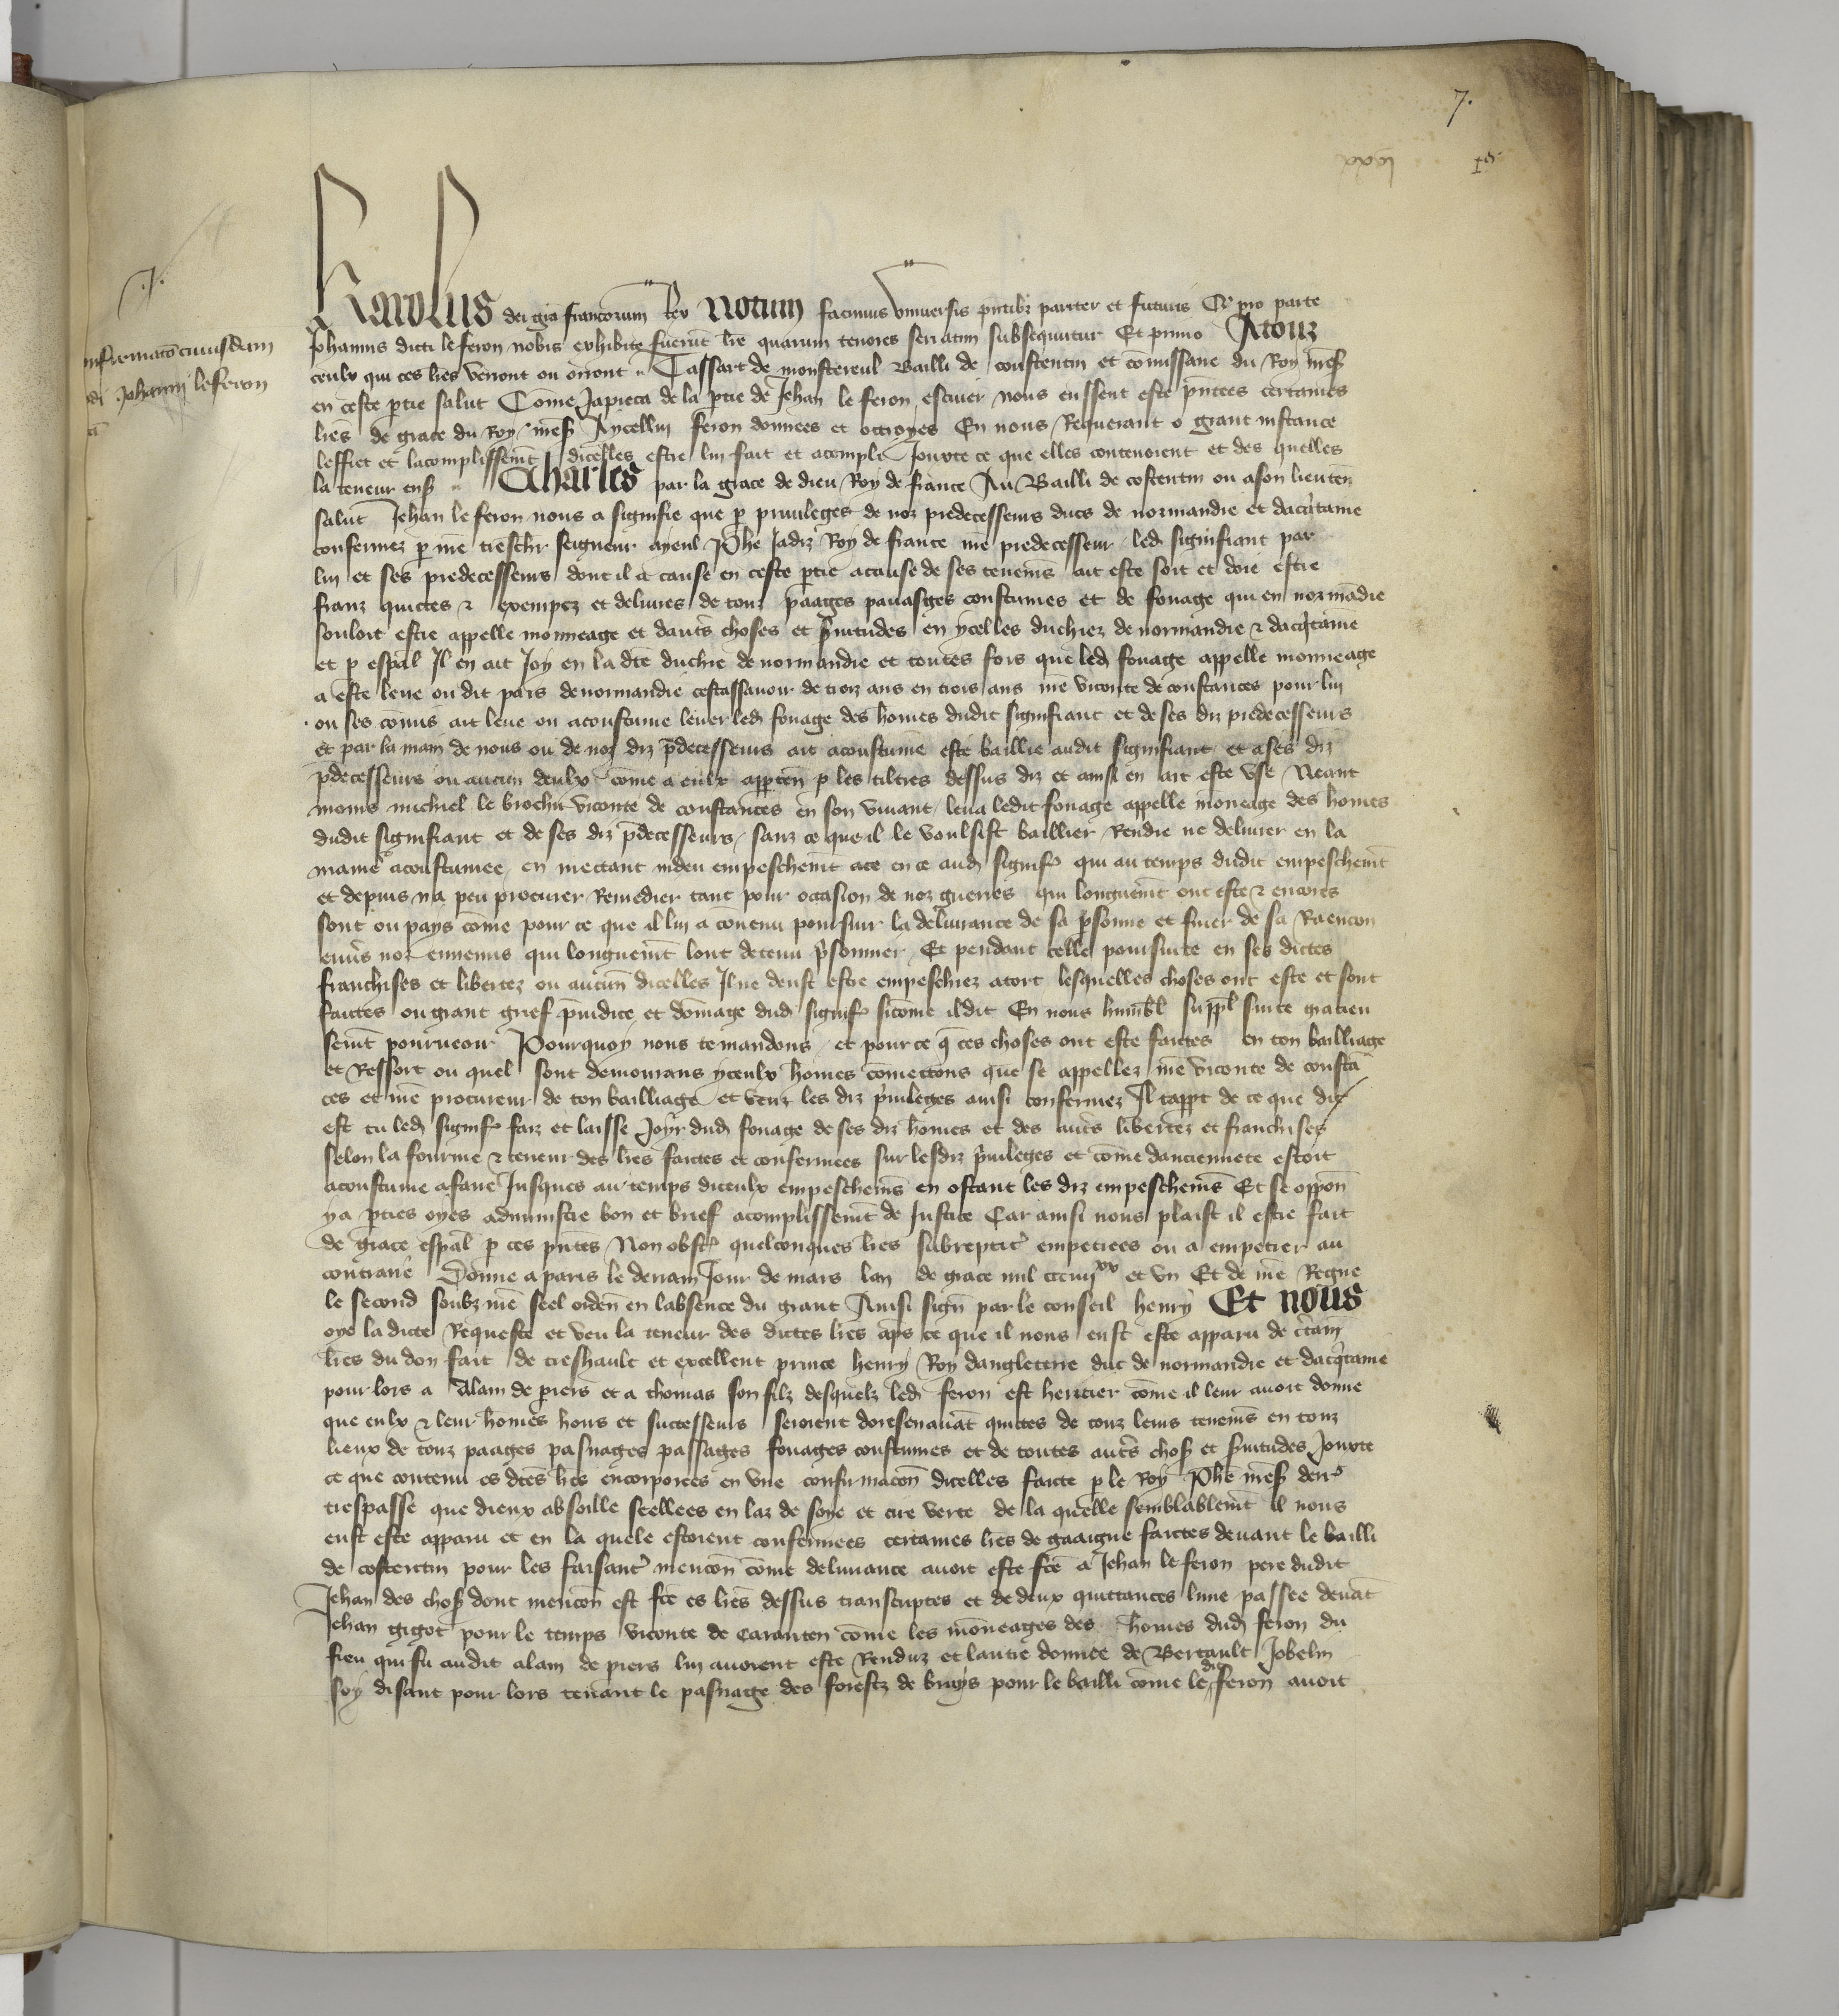 7.
lxxxi
.7.
Karolus dei gra francorum Rex Notum facimus universis pntibz pariter et futuris Qr pro parte
Confirmatō cuiusdam
Johannis dicti le feron nobis exhibite fuerūt lre quarum tenores seriatim subsequntur Et primo A touz
ceulx qui ces lres verront ou orront Tassart de monstereul Bailli de coustentin et cōmissaire du Roy nrēs
Johanni le feron
en ceste ptie salut Cōme Japieca de la ptie de Jehan le feron escuier nous eussent este pntees certaines
lres de grace du Roy nrēs Aycellui feron donnees et octroyes En nous Requerant o grant instance
leffiet et lacomplissemt dicelles estre lui fait et acompli Jouxte ce que elles contenoient et des quelles
la teneur ens Charles par la grace de dieu Roy de france Au Bailli de costentin ou a son lieuten
salut Jehan le feron nous a signifie que p privileges de noz predecesseurs ducs de normandie et dacqtaine
confermez p nre treschr seigneur ayeul Phe Jadiz Roy de france nre predecesseur led signifiant par
lui et ses predecesseurs dont il a cause en ceste ptie a cause de ses tenemēs ait este soit et doie estre
franz quictes & exemptz et delivres de touz paages pavasges coustumes et de fouage qui en normādie
souloit estre appelle monneage et dautrs choses et svitudes en ycelles duchiez de normandie & dacqtaine
et p espāl Il en ait Joy en la dte duchie de normandie et toutes fois que led fouage appelle monneage
a este leve ou dit pais de normandie cestassavoir de trois ans en trois ans nre viconte de coustances pour lui
ou ses cōmis ait leve ou acoustume lever led fouage des homēs dudit signifiant et de ses diz predecesseurs
et par la main de nous ou de noz diz pdecesseurs ait acoustume este baillie audit signifiant et a ses diz
pdecesseurs ou aucun deulx cōme a eulx apptēn p les tiltres dessus diz et ainsi en ait este use Neant
moins michiel le brochie viconte de coustances en son vivant leva ledit fouage appelle moneage des homēs
dudit signifiant et de ses diz pdecesseurs sanz ce que il le voulsist baillier Rendre ne delivrer en la
maniē acoustumee en mectant indeu empeschemt a ce en ce aud signif qui au temps dudit empeschemt
et depuis na peu procurer Remedier tant pour occasion de noz guerres qui longuemt ont este & encores
sont ou pays cōme pour ce que il lui a cōvenu poursuir la delivrance de sa psonne et finer de sa Raencon
envs noz ennemis qui longuemt lont detenu psonnier Et pendant telle poursuite en ses dictes
franchises et libertez ou aucun dicelles Il ne deust estre empeschiez a tort lesquelles choses ont este et sont
faictes ou grant grief pjudice et dōmage dud signif sicōme il dit En nous humbl suppl sur ce gracieu
semt pourveoir Pourquoy nous te mandons et pour ce q ces choses ont este faictes en ton bailliage
et Ressort ou quel sont demourans yceulx homēs cōmectons que se appellez nre viconte de coustā
ces et nre procureur de ton bailliage et veuz les diz privileges ainsi confermez Il tappt de ce que dit
est tu led signif faiz et laisse Joyr dud fouage de ses diz homēs et des autrs libertez et franchises
selon la fourme & teneur des lres faictes et confermees sur lesdiz privileges et cōme danciennete estoit
acoustume a faire Jusques au temps diceulx empeschemēs en ostant les diz empeschemēs Et se oppon
ya pties oyes administre bon et brief acomplissemt de Justice Car ainsi nous plaist il estre fait
de grace espāl p ces pntes Non obst quelconques lres subreptic empetrees ou a empetrer au
contraire Donne a paris le derrain Jour de mars lan de grace mil ccciiij xx et un Et de nre Regne
le second soubz nre seel orden en labsence du grant Ainsi sign par le conseil henry Et nous
oye la dicte Requeste et veu la teneur des dictes lres aps ce que il nous eust este apparu de ctain
lres du don fait de treshault et excellent prince henry Roy dangleterre duc de normandie et dacqtaine
pour lors a Alain de piers et a thomas son filz desquelz led feron est heritier cōme il leur avoit donne
que eulx & leur homēs hoirs et successeurs seroient doresenavāt quictes de touz leurs tenemēs en touz
lieux de touz paages pasnages passages fouages coustumes et de toutes autrs chos et svitudes Jouxte
ce que contenu es dtes lres encorporees en une confirmacōn dicelles faicte p le Roy Phe nrēs derr
trespasse que dieux absoille seellees en laz de soye et cire verte de la quelle semblablemt il nous
eust este apparu et en la quele estoient confermees certaines lres de gaaigne faictes devant le bailli
de costentin pour les faisant mencōn cōme delivrance avoit este fcē a Jehan le feron pere dudit
Jehan des chos dont mencōn est fcē es lres dessus transcriptes et de deux quittances lune passee devāt
Jehan gigot pour le temps viconte de Caranten cōme les mōneages des homēs dud feron du
fieu qui fu audit alain de piers lui avoient este Renduz et lautre donnee de Bertault Jobelin
soy disant pour lors tenant le pasnage des forestz de bruys pour le bailli cōme le dit feron avoit